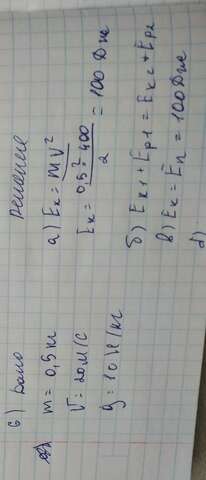 6) Дано
m = 0,5 кг
V = 20 м/с
g = 10 Н/кг
Решение
а) Eк = mV²
Eк = 0,5 * 400 / 2 = 100 Дж
б) Eк1 + Eр1 = Eк2 + Eр2
в) Eк = Eп = 100 Дж